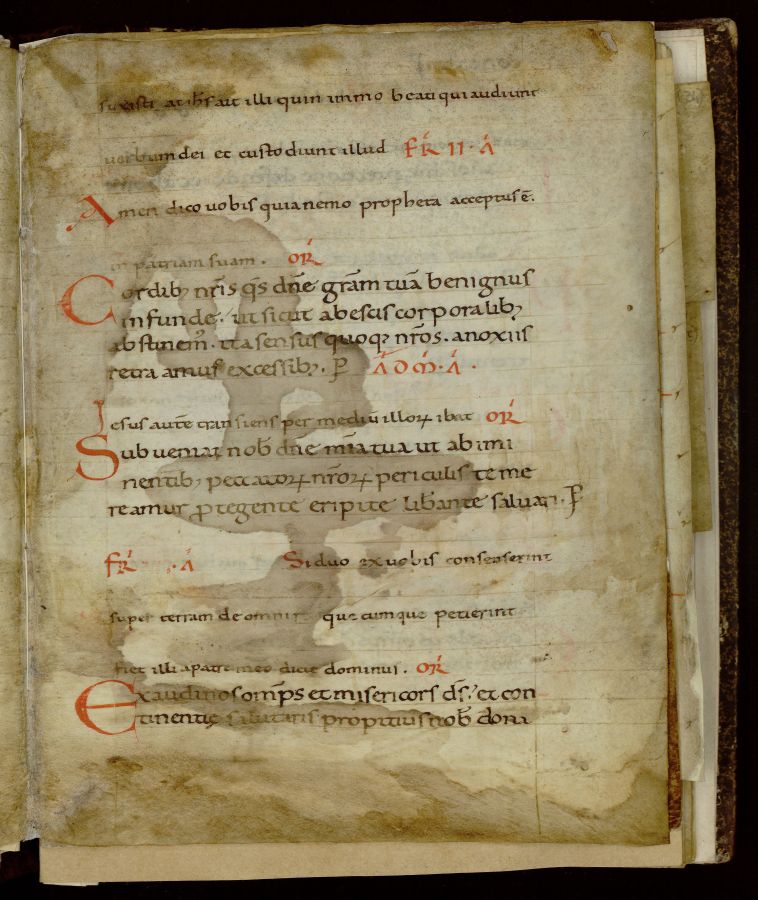 suxisti at ih̅s ait illi quin immo beati qui audiunt
uerbum dei et custodiunt illud FR̅ II · A̅
Amen dico uobis quia nemo propheta acceptus ē.
in patriam suam . OR̅
Cordib; nr̅is qs̅ dn̅e gra̅m tua̅ benignus
infunde. ut sicut ab escis corporalib;
abstinem̅. ita sensus quoq; nr̅os. a noxiis
retraamus excessib;. P̅ A̅D M̅ · A̅ ·
Iesus aute̅ transiens per mediu̅ illoꝝ ibat OR̅
Subueniat nob̅ dn̅e mi̅a tua ut ab immi
nentib; peccatoꝝ nr̅oꝝ periculis te me
reamur ꝓtegente eripi te lib̅ante saluari. P̅
FR̅ . A̅ Si duo ex uobis consenserint
super terram de omni re quęcumque petierint
fiet illi a patre meo dicit dominus. OR̅
Exaudi nos om̅ps et misericors ds̅. et con
tinentię salutaris propitius nob̅ dona